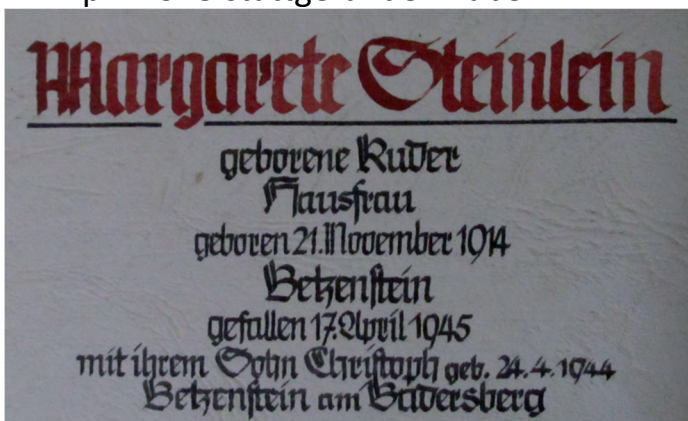 Margarete Steinlein
geborene Ruder
Hausfrau
geboren 21. November 1914
Betzenstein
gefallen 17. April 1945
mit ihrem Sohn Christoph geb. 24.4.1944
Betzenstein am Badersberg